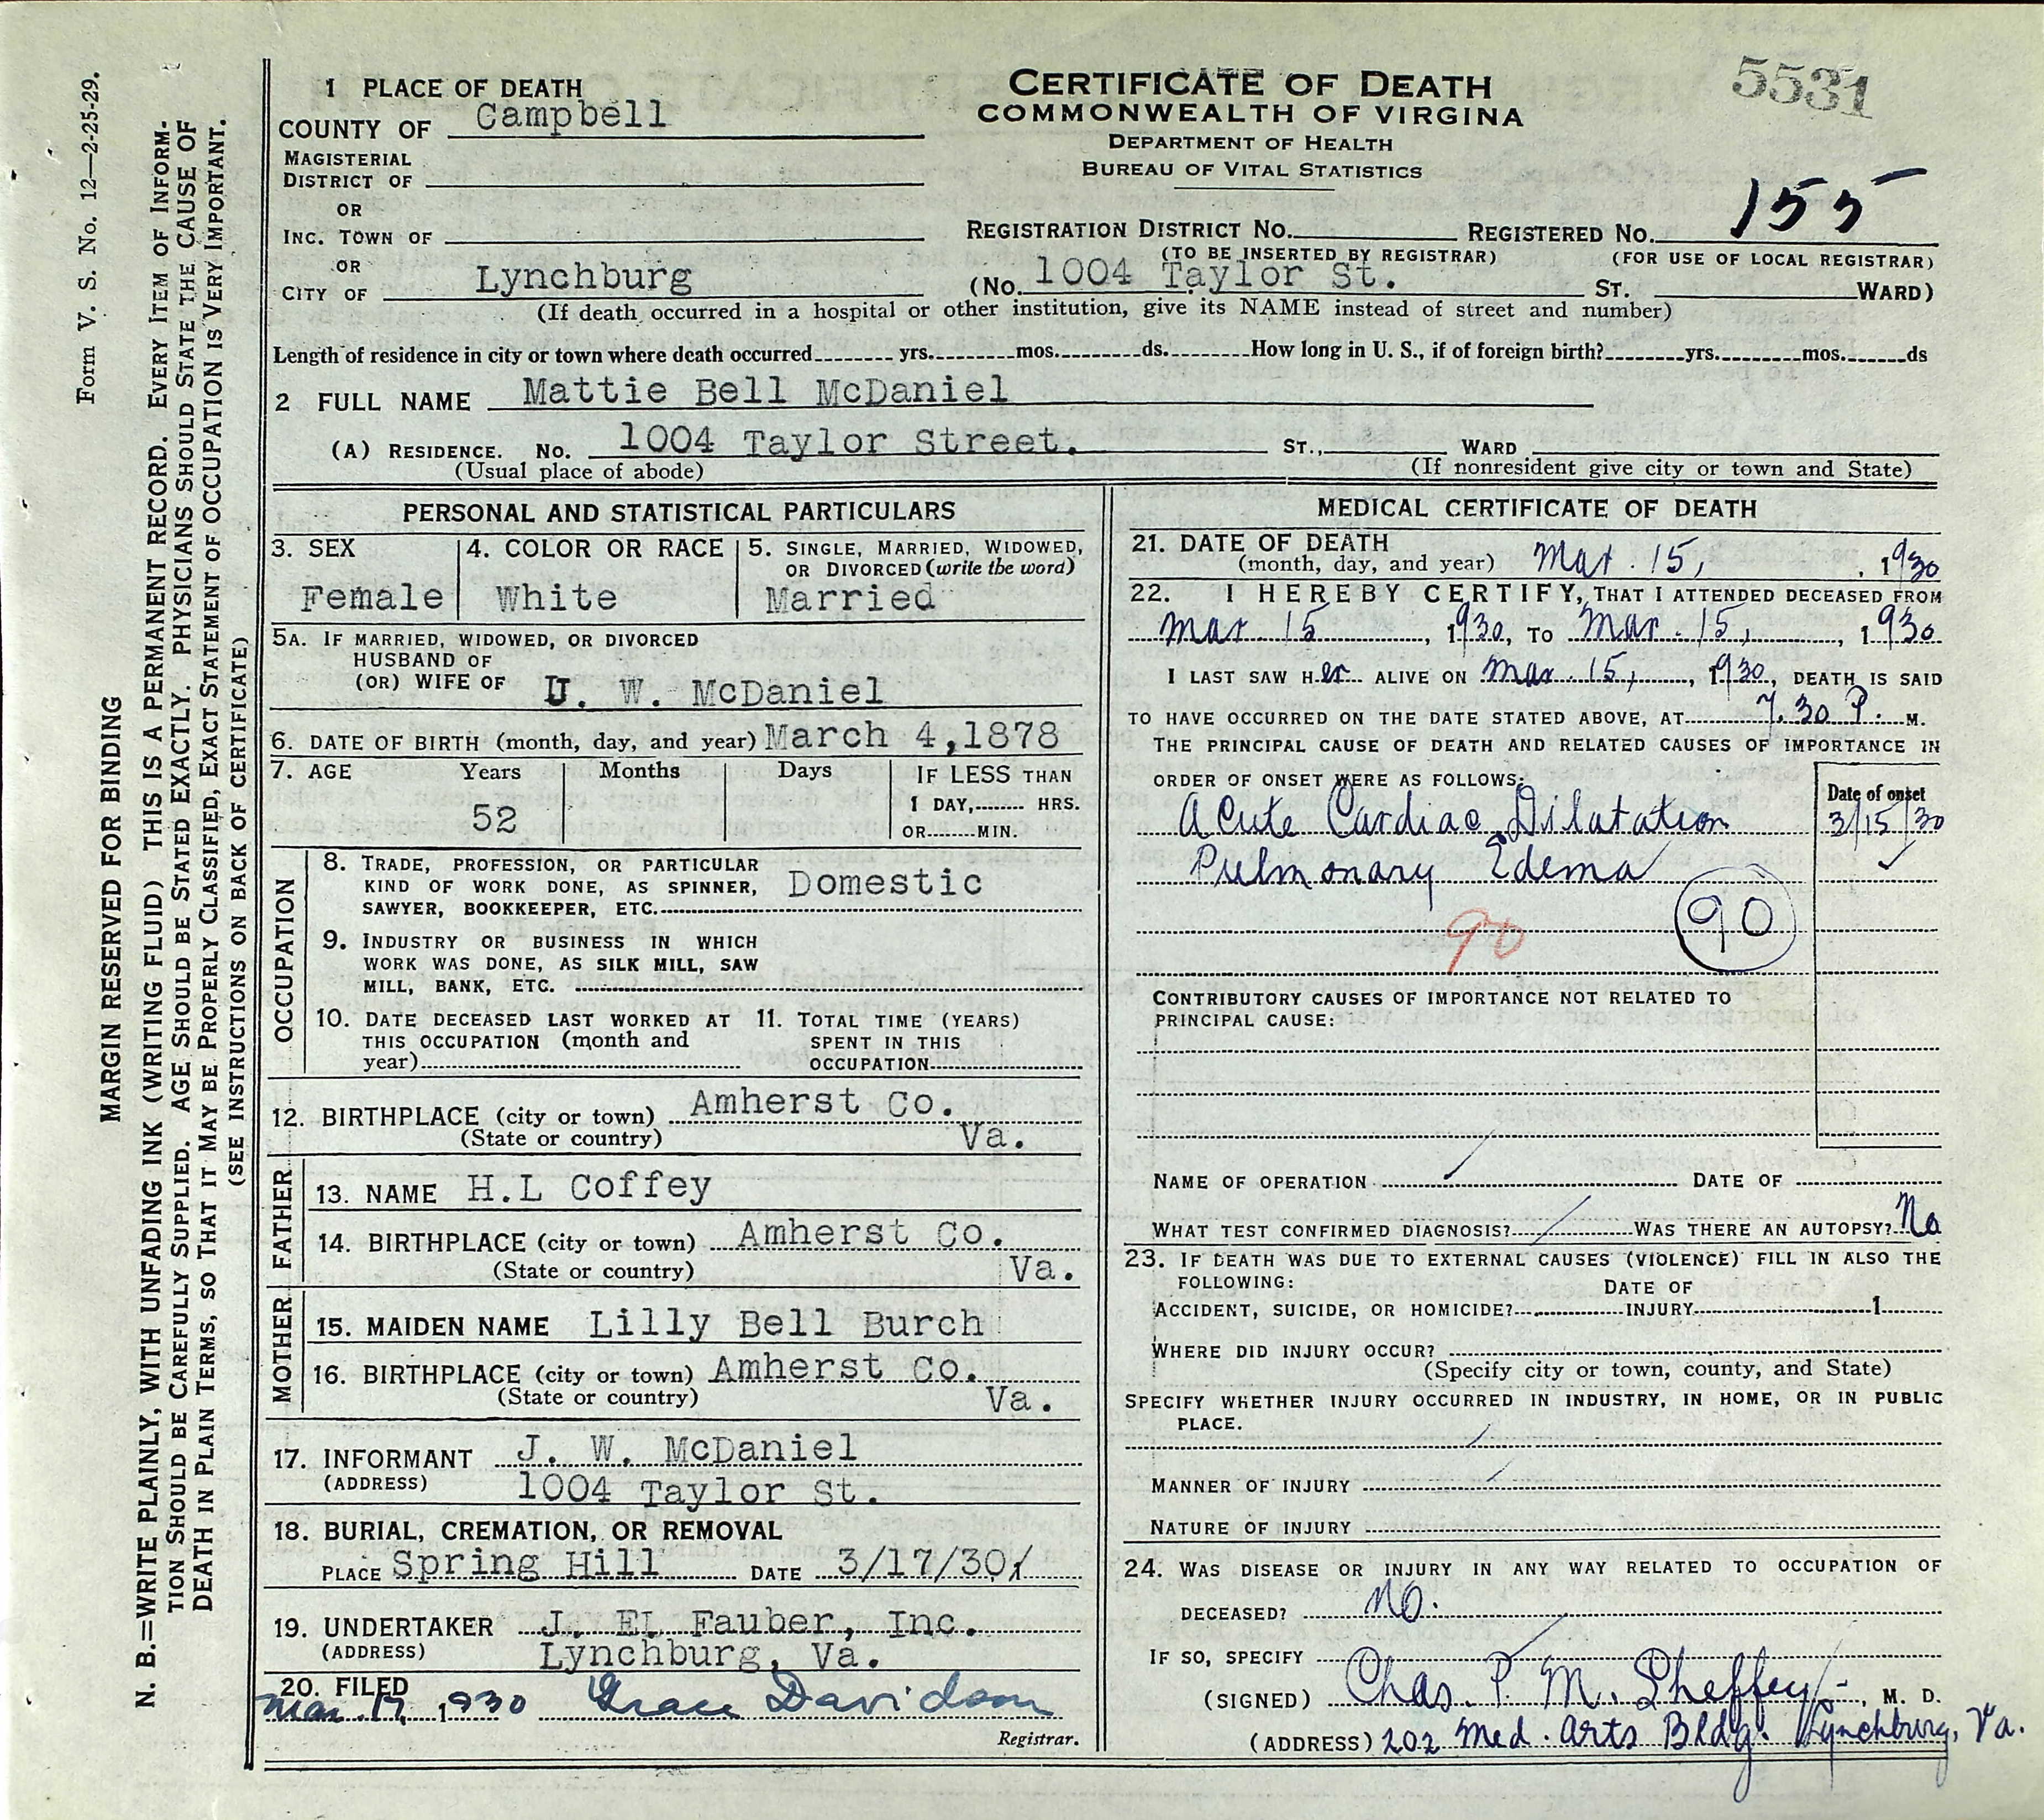 Form V. S. No. 12—2-25-29.
MARGIN RESERVED FOR BINDING
N. B.—WRITE PLAINLY, WITH UNFADING INK (WRITING FLUID) THIS IS A PERMANENT RECORD. EVERY ITEM OF INFORM-
TION SHOULD BE CAREFULLY SUPPLIED. AGE SHOULD BE STATED EXACTLY. PHYSICIANS SHOULD STATE THE CAUSE OF
DEATH IN PLAIN TERMS, SO THAT IT MAY BE PROPERLY CLASSIFIED, EXACT STATEMENT OF OCCUPATION IS VERY IMPORTANT.
(SEE INSTRUCTIONS ON BACK OF CERTIFICATE)
CERTIFICATE OF DEATH
COMMONWEALTH OF VIRGINA
DEPARTMENT OF HEALTH
BUREAU OF VITAL STATISTICS
5531
1 PLACE OF DEATH
COUNTY OF Campbell
MAGISTERIAL
DISTRICT OF
OR
INC. TOWN OF
OR
CITY OF Lynchburg
REGISTRATION DISTRICT NO. REGISTERED NO. 155
(TO BE INSERTED BY REGISTRAR) (FOR USE OF LOCAL REGISTRAR)
(NO. 1004 Taylor St. ST. WARD)
(If death occurred in a hospital or other institution, give its NAME instead of street and number)
Length of residence in city or town where death occurred yrs. mos. ds. How long in U. S., if of foreign birth? yrs. mos. ds
2 FULL NAME Mattie Bell McDaniel
(A) RESIDENCE. NO. 1004 Taylor Street. ST., WARD
(Usual place of abode) (If nonresident give city or town and State)
PERSONAL AND STATISTICAL PARTICULARS
3. SEX 4. COLOR OR RACE 5. SINGLE, MARRIED, WIDOWED,
OR DIVORCED (write the word)
Female White Married
5A. IF MARRIED, WIDOWED, OR DIVORCED
HUSBAND OF
(OR) WIFE OF J. W. McDaniel
6. DATE OF BIRTH (month, day, and year) March 4,1878
7. AGE Years Months Days IF LESS THAN
1 DAY, HRS.
52 OR MIN.
OCCUPATION
8. TRADE, PROFESSION, OR PARTICULAR
KIND OF WORK DONE, AS SPINNER, Domestic
SAWYER, BOOKKEEPER, ETC.
9. INDUSTRY OR BUSINESS IN WHICH
WORK WAS DONE, AS SILK MILL, SAW
MILL, BANK, ETC.
10. DATE DECEASED LAST WORKED AT 11. TOTAL TIME (YEARS)
THIS OCCUPATION (month and SPENT IN THIS
year) OCCUPATION
12. BIRTHPLACE (city or town) Amherst Co.
(State or country) Va.
FATHER
13. NAME H.L Coffey
14. BIRTHPLACE (city or town) Amherst Co.
(State or country) Va.
MOTHER
15. MAIDEN NAME Lilly Bell Burch
16. BIRTHPLACE (city or town) Amherst Co.
(State or country) Va.
17. INFORMANT J. W. McDaniel
(ADDRESS) 1004 Taylor St.
18. BURIAL, CREMATION, OR REMOVAL
PLACE Spring Hill DATE 3/17/30
19. UNDERTAKER J. EL Fauber, Inc.
(ADDRESS) Lynchburg, Va.
20. FILED
Mar. 17, 1930 Grace Davidson
Registrar.
MEDICAL CERTIFICATE OF DEATH
21. DATE OF DEATH
(month, day, and year) Mar. 15, , 1930
22. I HEREBY CERTIFY, THAT I ATTENDED DECEASED FROM
Mar 15 , 1930, TO Mar. 15, , 1930
I LAST SAW Her ALIVE ON Mar. 15, , 1930, DEATH IS SAID
TO HAVE OCCURRED ON THE DATE STATED ABOVE, AT 7.30 P. M.
THE PRINCIPAL CAUSE OF DEATH AND RELATED CAUSES OF IMPORTANCE IN
ORDER OF ONSET WERE AS FOLLOWS: Date of onset
Acute Cardiac Dilatation 3/15/30
Pulmonary Edema ✓
90 90
CONTRIBUTORY CAUSES OF IMPORTANCE NOT RELATED TO
PRINCIPAL CAUSE:
NAME OF OPERATION DATE OF
WHAT TEST CONFIRMED DIAGNOSIS? WAS THERE AN AUTOPSY? No
23. IF DEATH WAS DUE TO EXTERNAL CAUSES (VIOLENCE) FILL IN ALSO THE
FOLLOWING: DATE OF
ACCIDENT, SUICIDE, OR HOMICIDE? INJURY 1
WHERE DID INJURY OCCUR?
(Specify city or town, county, and State)
SPECIFY WHETHER INJURY OCCURRED IN INDUSTRY, IN HOME, OR IN PUBLIC
PLACE.
MANNER OF INJURY
NATURE OF INJURY
24. WAS DISEASE OR INJURY IN ANY WAY RELATED TO OCCUPATION OF
DECEASED? No.
IF SO, SPECIFY
(SIGNED) Chas. P. M. Sheffey , M. D.
(ADDRESS) 202 Med. Arts Bldg. Lynchburg, Va.